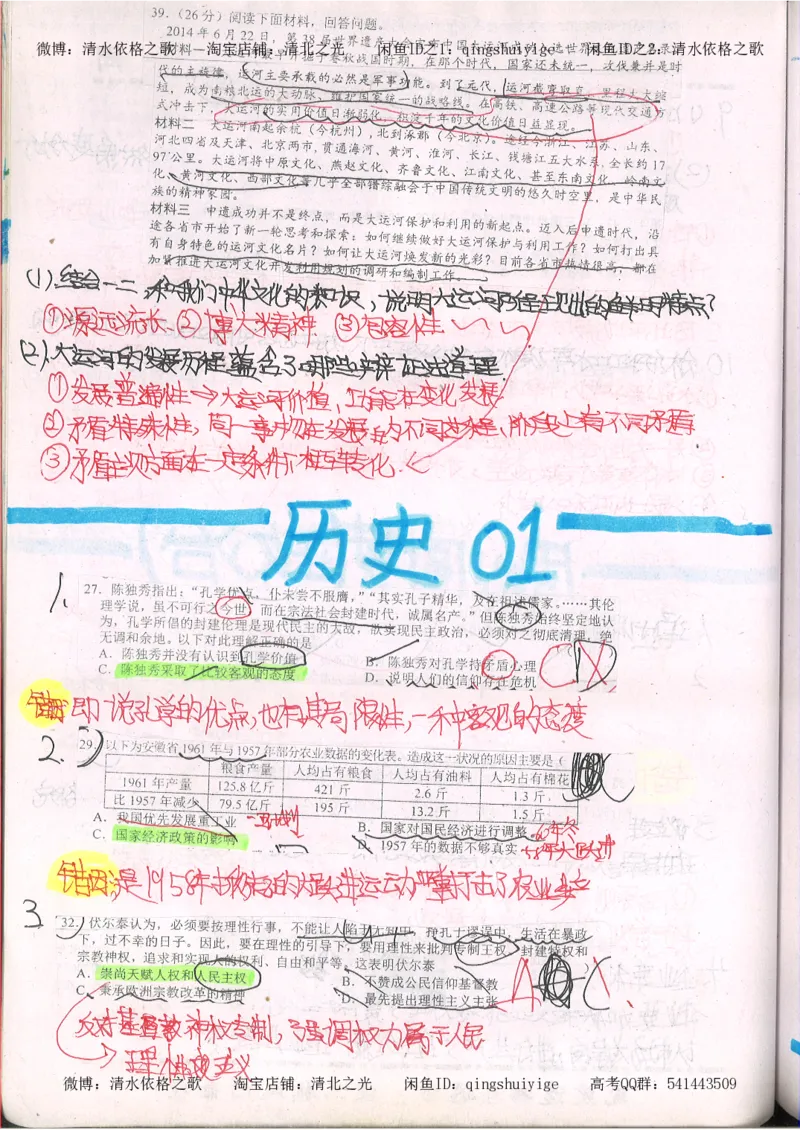 39.（26分）阅读下面材料，回答问题。
微博：清水依格之歌 淘宝店铺：清北之光 闲鱼ID之1：qingshuiyige 闲鱼ID之2：清水依格之歌
代的主旋律，运河主要承载的必然是军事功能。到了元代，运河截弯取直，里程大大缩
短，成为南粮北运的大动脉，维护国家统一的战略线。在高铁、高速公路等现代交通方
式冲击下，大运河的实用价值日渐弱化，积淀千年的文化价值日益显现。
材料二 大运河南起余杭（今杭州），北到涿郡（今北京）。途经今浙江、江苏、山东、
河北四省及天津、北京两市，贯通海河、黄河、淮河、长江、钱塘江五大水系，全长约 17
97公里。大运河将中原文化、燕赵文化、齐鲁文化、江南文化、甚至东南文化、岭南文
化、黄河文化、西部文化等几乎全部错综融会于中国传统文明的悠久时空里，是中华民
族的精神家园。
材料三 申遗成功并不是终点，而是大运河保护和利用的新起点。迈入后申遗时代，沿
途各省市开始了新一轮思考和探索：如何继续做好大运河保护与利用工作？如何打出具
有自身特色的运河文化名片？如何让大运河焕发新的光彩？目前各省市热情很高，都在
加紧推进大运河文化开发利用规划的调研和编制工作。
(1).结合一二和我们中华文化的知识，说明大运河所呈现出的鲜明特点？
①源远流长 ②博大精神 ③包容性
(2).大运河的发展历程蕴含了哪些辩证法道理
①发展普遍性→大运河价值，功能在变化发展
②矛盾特殊性，同一事物在发展的不同过程、阶段上有不同矛盾
③矛盾双方面在一定条件下相互转化
历史 01
1.
27. 陈独秀指出：“孔学优点，仆未尝不服膺，”“其实孔子精华，乃在祖述儒家。……其伦
理学说，虽不可行之今世，而在宗法社会封建时代，诚属名产。”但陈独秀始终坚定地认
为，孔学所倡的封建伦理是现代民主的大敌，欲实现民主政治，必须对之彻底清理，绝
无调和余地。以下对此理解正确的是
A. 陈独秀并没有认识到孔学价值 B. 陈独秀对孔学持矛盾心理
C. 陈独秀采取了比较客观的态度 D. 说明人们的信仰存在危机
错因 即说孔学的优点，也有其局限性，一种客观的态度
2.
29. 以下为安徽省 1961 年与 1957 年部分农业数据的变化表。造成这一状况的原因主要是（
粮食产量 人均占有粮食 人均占有油料 人均占有棉花
1961 年产量 125.8 亿斤 421 斤 2.6 斤 1.3 斤
比 1957 年减少 79.5 亿斤 195 斤 13.2 斤 1.5 斤
A. 我国优先发展重工业 B. 国家对国民经济进行调整
C. 国家经济政策的影响 D. 1957 年的数据不够真实
错因：是1958年开始的大跃进运动严重打击了农业生产
3.
32. 伏尔泰认为，必须要按理性行事，不能让人陷于无知中，在扎于谬误中，生活在暴政
下，过不幸的日子。因此，要在理性的引导下，要用理性来批判专制王权、封建特权和
宗教神权，追求和实现人的权利、自由和平等。这表明伏尔泰
A. 崇尚天赋人权和人民主权 B. 不赞成公民信仰基督教
C. 秉承欧洲宗教改革的精神 D. 最先提出理性主义主张
反对基督教神权专制，强调权力属于人民
微博：清水依格之歌 淘宝店铺：清北之光 闲鱼ID：qingshuiyige 高考QQ群：541443509